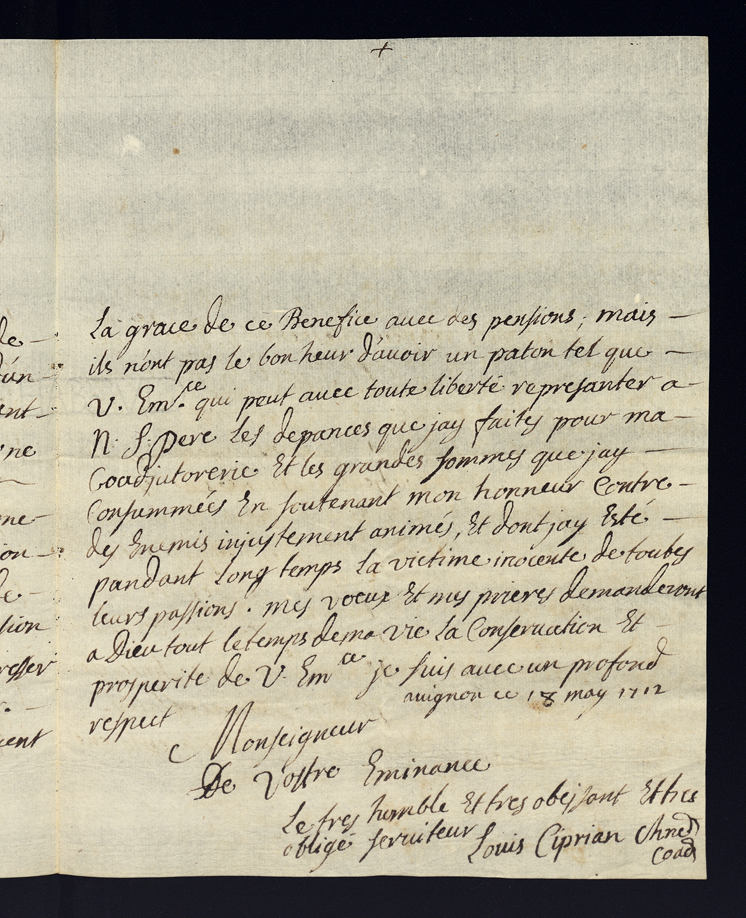 +
La grace de ce Benefice avec des pensions; mais –
ils n'ont pas le bonheur d'avoir un paton tel que –
V. Em.ce qui peut avec toute liberté represanter a –
N. S. Pere les depances que jay faites pour ma –
Coadjutorerie Et les grandes sommes que jay –
Consummées En soutenant mon honneur Contre –
des Enemis injustement animés, Et dont jay Esté –
pandant long temps la victime inocente de toutes
leurs passions. mes voeux Et mes prieres demanderont
a Dieu tout le temps de ma vie la Conservation Et –
prosperite de V. Em.ce je suis avec un profond
respect
avignon ce 18 may 1712
Monseigneur
De Vostre Eminance
Le tres humble Et tres obeissant Et tres
obligé serviteur Louis Ciprian
Coad
de –
d'un –
ent –
ne
ne –
ion –
le –
sion
resser
cent